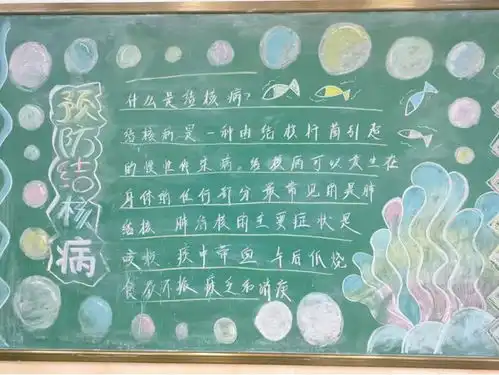 预防结核病
什么是结核病?
结核病是一种由结核杆菌引起
的慢性传染病,结核病可以发生在
身体的任何部分最常见的是肺
结核 肺结核的主要症状是
咳嗽 痰中带血 午后低烧
食欲不振 疲乏和消瘦